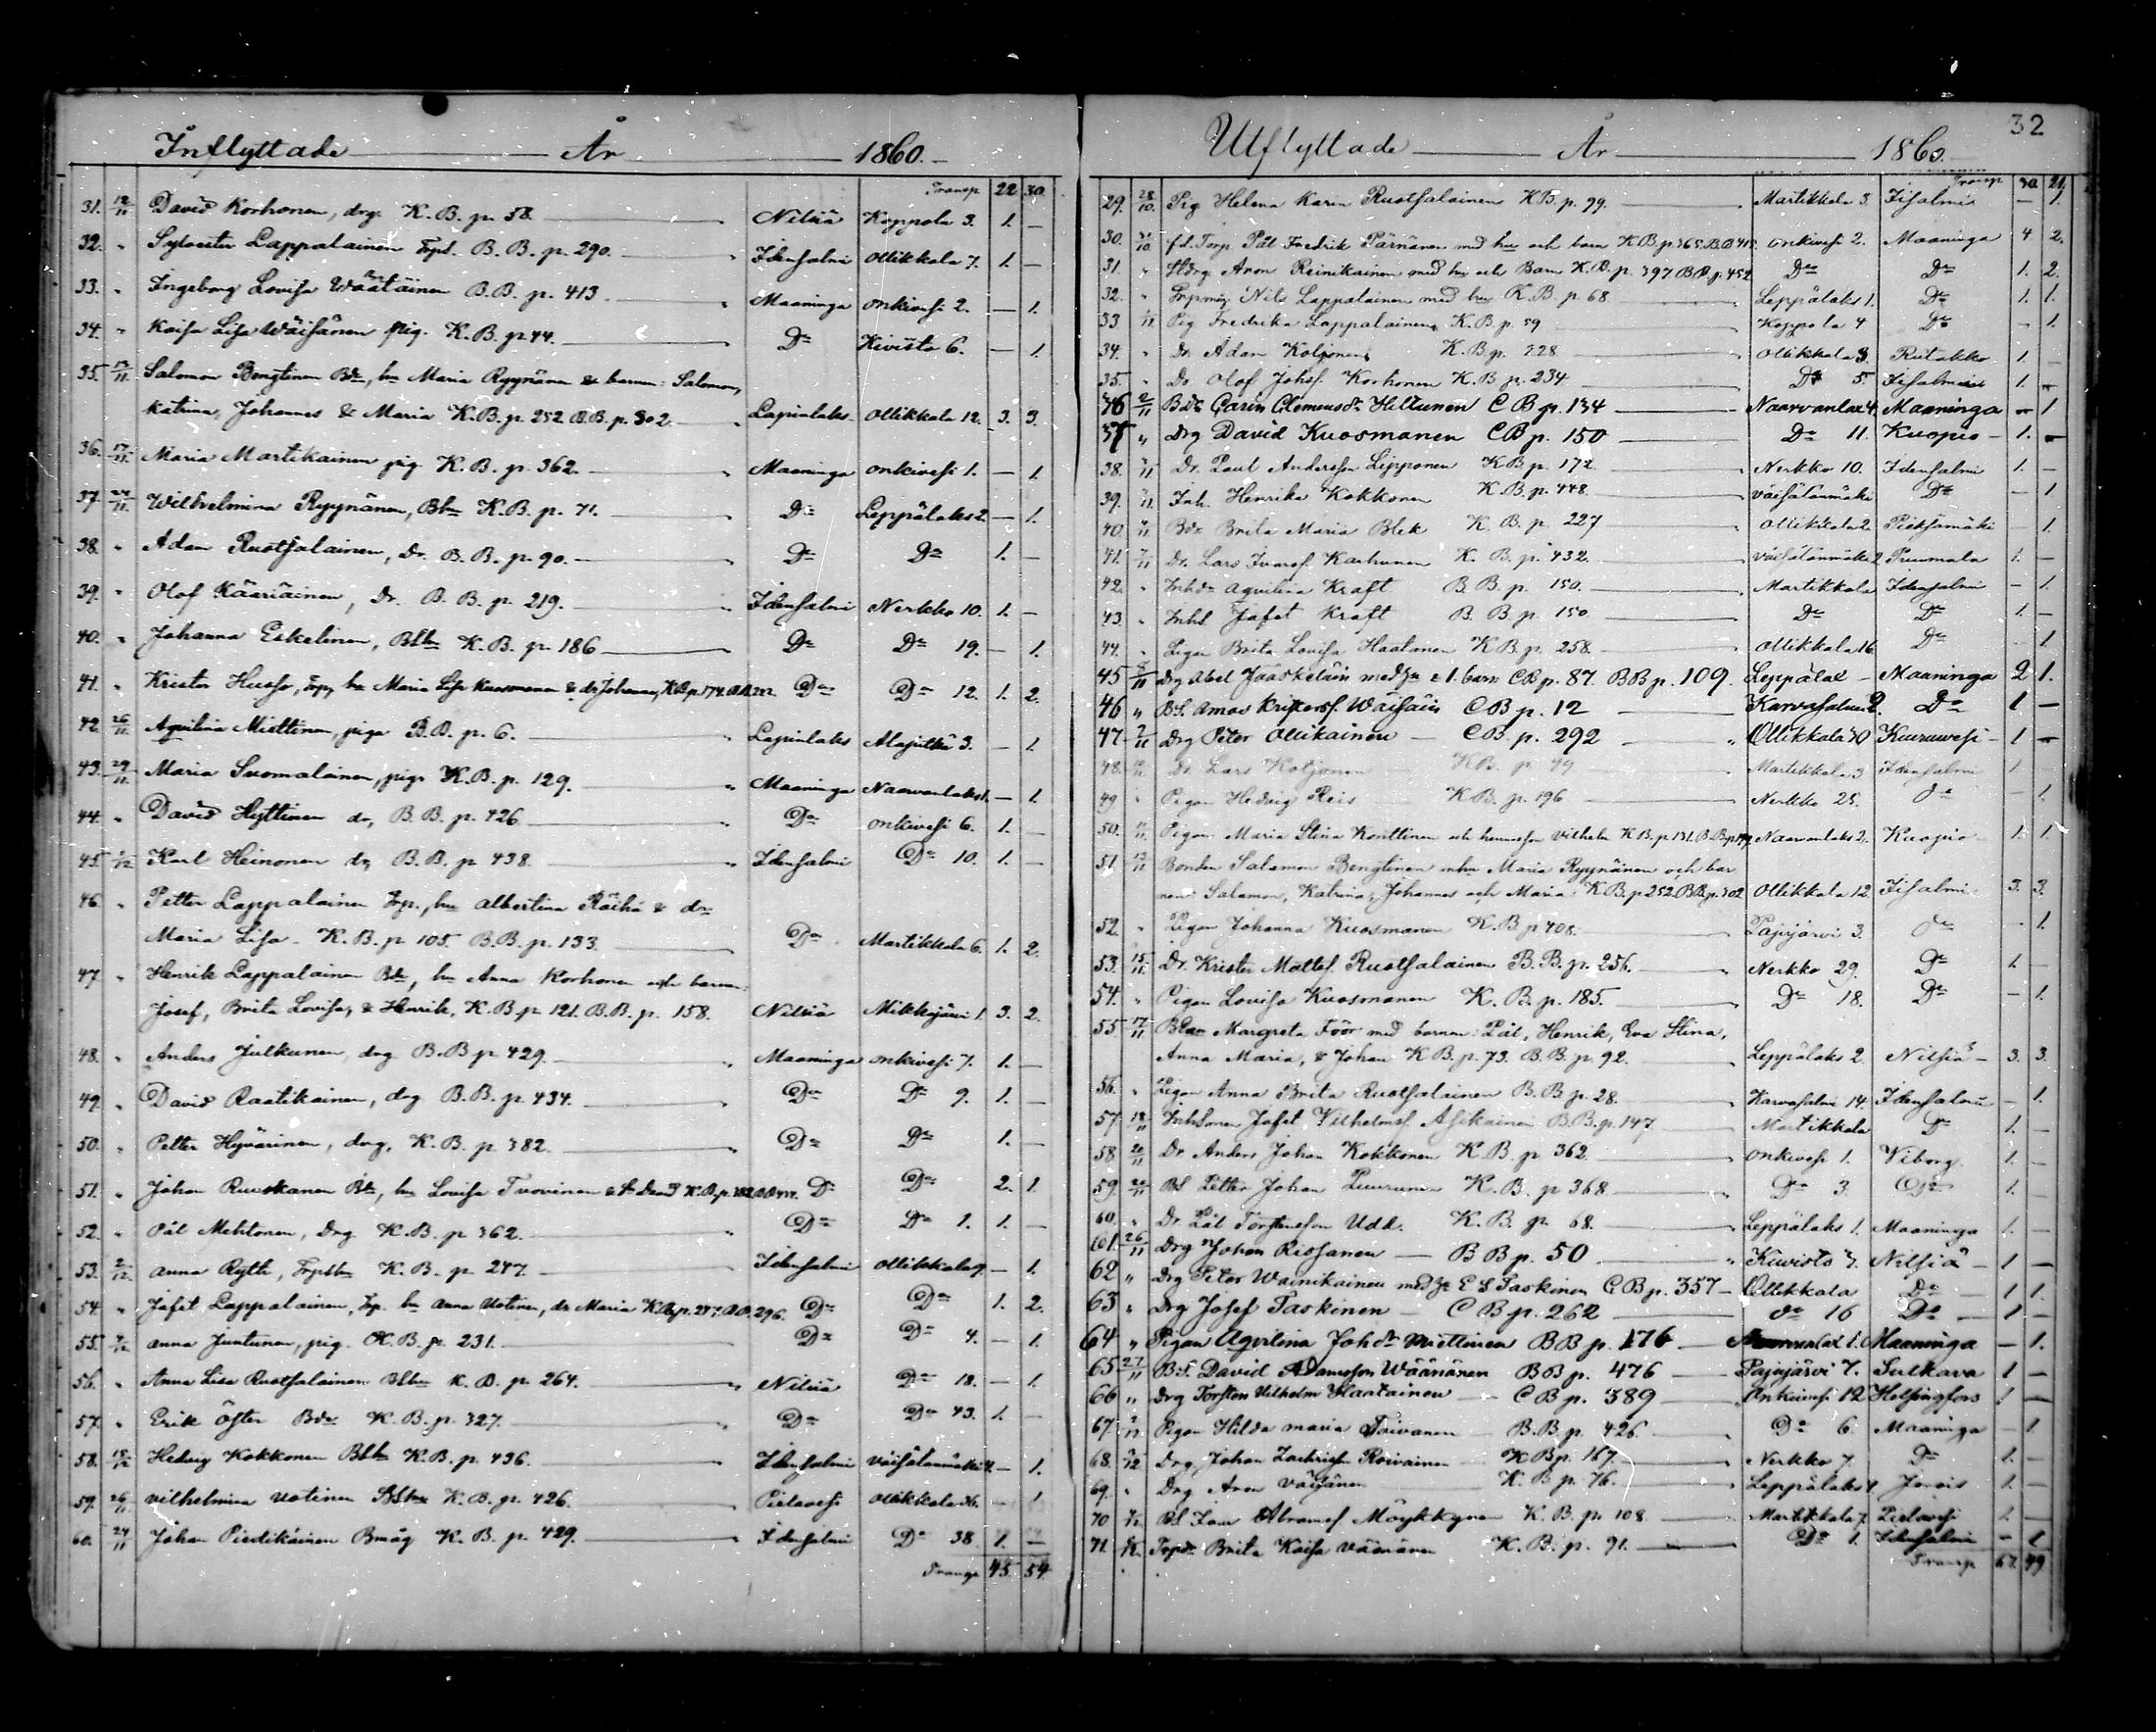 Inflyttade År 1860.
Transp. 22 30
31. 12/11 David Korhonen, drg. K. B. p. 58. Nilsiä Koppola 3. 1. —
32. " Sylvester Lappalainen Trpd. B. B. p. 290. Idensalmi Ollikkala 7. 1. —
33. " Ingeborg Lovisa Väätäinen B.B. p. 413. Maaninga Onkivesi 2. — 1.
34. " Kaisa Lisa Wäisänen pig. K. B. p. 44. Do Kivistö 6. — 1.
35. 13/11 Salomon Bengtinen Bde, hu Maria Ryynänen & barnen: Salomon,
Katrina, Johannes & Maria K.B. p. 252 B.B. p. 302 Lapinlaks Ollikkala 12. 3. 3.
36. 17/11 Maria Martikainen pig K. B. p. 362. Maaninga Onkivesi 1. — 1.
37. 24/11 Wilhelmina Ryynänen, Bhu K. B. p. 71. Do Leppälaks 2. — 1.
38. " Adam Ruotsalainen, Dr. B. B. p. 90. Do Do 1. —
39. " Olof Kääriäinen, Dr. B. B. p. 219. Idensalmi Nerkko 10. 1. —
40. " Johanna Eskelinen, Blhu K. B. p. 186 Do Do 19. — 1.
41. " Krister Husso, Trp, hu Maria Lisa Kuosmanen & dr Johanna, K.B. p. 174. Do Do 12. 1. 2.
42. 26/11 Aqvilina Miettinen, piga B. B. p. 6. Lapinlaks Alapitkä 3. — 1.
43. 29/11 Maria Suomalainen, piga K. B. p. 129. Maaninga Naarvanlaks 1. — 1.
44. " David Hyttinen dr, B. B. p. 426 Do Onkivesi 6. 1. —
45. 1/12 Karl Heinonen dr, B. B. p. 438. Idensalmi Do 10. 1. —
46. " Petter Lappalainen Trp., hu Albertina Räihä & dr
Maria Lisa. K. B. p. 105. B. B. p. 133. Do Martikkala 6. 1. 2.
47. " Henrik Lappalainen Bde, hu Anna Korhonen och barnen:
Josef, Brita Lovisa, & Henrik, K. B. p. 121. B. B. p. 158. Nilsiä Mikkajärvi 1. 3. 2.
48. " Anders Julkunen, drg B. B p 429. Maaninga Onkivesi 7. 1. —
49. " David Raatikainen, drg B. B. p. 434. Do Do 9. 1. —
50. " Petter Hyvärinen, drg, K. B. p. 382. Do Do 1. —
51. " Johan Ruuskanen Bde, hu Lovisa Tuovinen & Sn David K. B. p. 382 Do Do 2. 1.
52. " Pål Mehtonen, Drg K. B. p. 362. Do Do 1. 1. —
53. 2/12 Anna Ryth, Trpdhu K. B. p. 247. Idensalmi Ollikkala 9. — 1.
54. " Jafet Lappalainen, Trp. hu Anna Uotinen, dr Maria K.B. p. 247. B. B. 296. Do Do 1. 2.
55. 7/12 Anna Juntunen, pig. K. B. p. 231. Do Do 4. — 1.
56. " Anna Lisa Ruotsalainen Blhu K. B. p. 264. Nilsiä Do 18. — 1.
57. " Erik Öster Bde K. B. p. 327. Do Do 43. 1. —
58. 18/12 Hedvig Kokkonen Blhu K. B. p. 436. Idensalmi Väisälänmäki 4. — 1.
59. 26/11 Vilhelmina Uotinen K. B. p. 426. Pielavesi Ollikkala 36. — 1.
60. 24/11 Johan Piedikäinen Bmåg K. B. p. 429. Idensalmi Do 38. 1. —
Transp 45 54
Utflyttade År 1860. 32
Transp 30 21.
29. 28/10. Pig Helena Karin Ruotsalainen K B. p. 99. Martikkala 3. Iisalmi — 1.
30. 31/10 fd. Torp. Pål Fredrik Pärnänen med hu och barn K B. p. 365. B. B 415. Onkivesi 2. Maaninga 4. 2.
31. " Aron Reinikainen med hu och Barn K. B. p. 397. B B. p. 452 Do Do 1. 2.
32. " Nils Lappalainen med hu K. B. p. 68. Leppälaks 1. Do 1. 1.
33 Pig Fredrika Lappalainen, K. B. p. 59 Koppola 4 Do — 1.
34. " Dr Adam Koljonen K. B. p. 328 Ollikkala 3. Rutakko 1. —
35. " Dr Olof Johsf. Korhonen K. B p. 234 Do 5. Iisalmi 1. —
36 2/11 Bdr Carin Clemensdr Hiltunen C B p. 134 Naarvanlax 4. Maaninga — 1
37 " Drg David Kuosmanen C B p. 150 Do 11. Kuopio 1. —
38. Dr. Paul Andersson Lipponen K B. p. 172. Nerkko 10. Idensalmi 1. —
39. Inh. Henrika Kokkonen K. B. p. 448. Väisälänmäki Do — 1
40. Bdr Brita Maria Blek K. B. p. 227 Ollikkala 2. Pieksämäki — 1.
41. Dr. Lars Ivarsf. Karhunen K. B. p. 432. Väisälänmäki 2 Puumala 1. —
42. " Inhdr Aqvilina Kraft B. B. p. 150. Martikkala Idensalmi — 1.
43. " Inhs. Jafet Kraft B. B. p. 150. Do Do 1. —
44. " Pigan Brita Lovisa Haatanen K B p. 258. Ollikkala 16 Do — 1
45 Drg Abel Jääskeläin med hu & 1. barn C B p. 87. B B p. 109. Leppälax — Maaninga 2 1.
46 " B.S. Amos Kristersf. Wäisäin C B p. 12 Karvasalmi 2. Do 1 —
47 7/11 Drg Peter Ollikainen C B. p. 292 Ollikkala 30 Kiuruwesi 1 —
48. Dr Lars Koljonen K B. p. 49 Martikkala 3 Idensalmi 1 —
49 " Pigan Hedvig Reis K B. p. 196 Nerkko 25. do — 1.
50. Pigan Maria Stina Konttinen och hennes son Vilhelm K B. p. 131. B. B p. 179. Naarvanlaks 2. Kuopio 1. 1.
51. 13/11 Bonden Salamon Bengtinen mhu Maria Ryynänen och bar
nen: Salamon, Katrina, Johannes och Maria: K B. p. 252. B B. p. 302 Ollikkala 12. Iisalmi 3. 3.
52. " Pigan Johanna Kuosmanen K. B p 408. Pajujärvi 3. do — 1.
53. 15/11 Dr. Krister Mattsf. Ruotsalainen B. B. p. 256. Nerkko 29. Do 1. —
54. " Pigan Lovisa Kuosmanen K. B. p. 185. Do 18. Do — 1.
55 17/11 Margreta Föör med barnen: Pål, Henrik, Eva Stina,
Anna Maria, & Johan K B. p. 73. B. B. p. 92. Leppälaks 2. Nilsiä 3. 3.
56. " Pigan Anna Brita Ruotsalainen B. B p. 28. Karvasalmi 14. Idensalmi — 1.
57. 18/11 InhSonen Jafet Vilhelmsf. Asikainen B. B. p. 147. Martikkala Do 1. —
58 20/11 Dr Anders Johan Kokkonen K. B. p. 362 Onkivesi 1. Viborg 1. —
59. 20/11 BS Petter Johan Puurunen K. B. p 368. Do 3. Do 1. —
60. " Dr Pål Torstensson Udd. K. B. p. 68. Leppälaks 1. Maaninga 1. —
61. 26/11 Drg Johan Rissanen B B p. 50 Kivistö 3. Nilsiä 1 —
62 " Drg Peter Wainikainen med hu E S Taskinen C B p. 357 Ollikkala Do 1 1.
63 " Drg Josef Taskinen C B p. 262 do 16 Do 1 —
64 " Pigan Aqvilina Johdr Miettinen B B p. 176 1. Maaninga — 1.
65 27/11 B.S. David Adamsson Wäänänen B B p. 476 Pajujärvi 7. Sulkava 1 —
66 " Drg Torsten Vilhelm Haatainen C B p. 389 Onkivesi 12 Helsingfors 1 —
67. Pigan Hilda Maria Toivanen B. B p. 426. Do 6. Maaninga — 1.
68. Drg Johan Zachrisfn Roivainen K B p. 167. Nerkko 7. Do 1. —
69. " Drg Aron Väisänen K. B p. 76. Leppälaks 4 Jorois 1. —
70 BS Abramsf Möykkynen K. B. p. 108 Martikkala 7. Pielavesi 1. —
71. Brita Kaisa Väänänen K. B. p. 91. Do 1. Idensalmi — 1
Transp 62 49